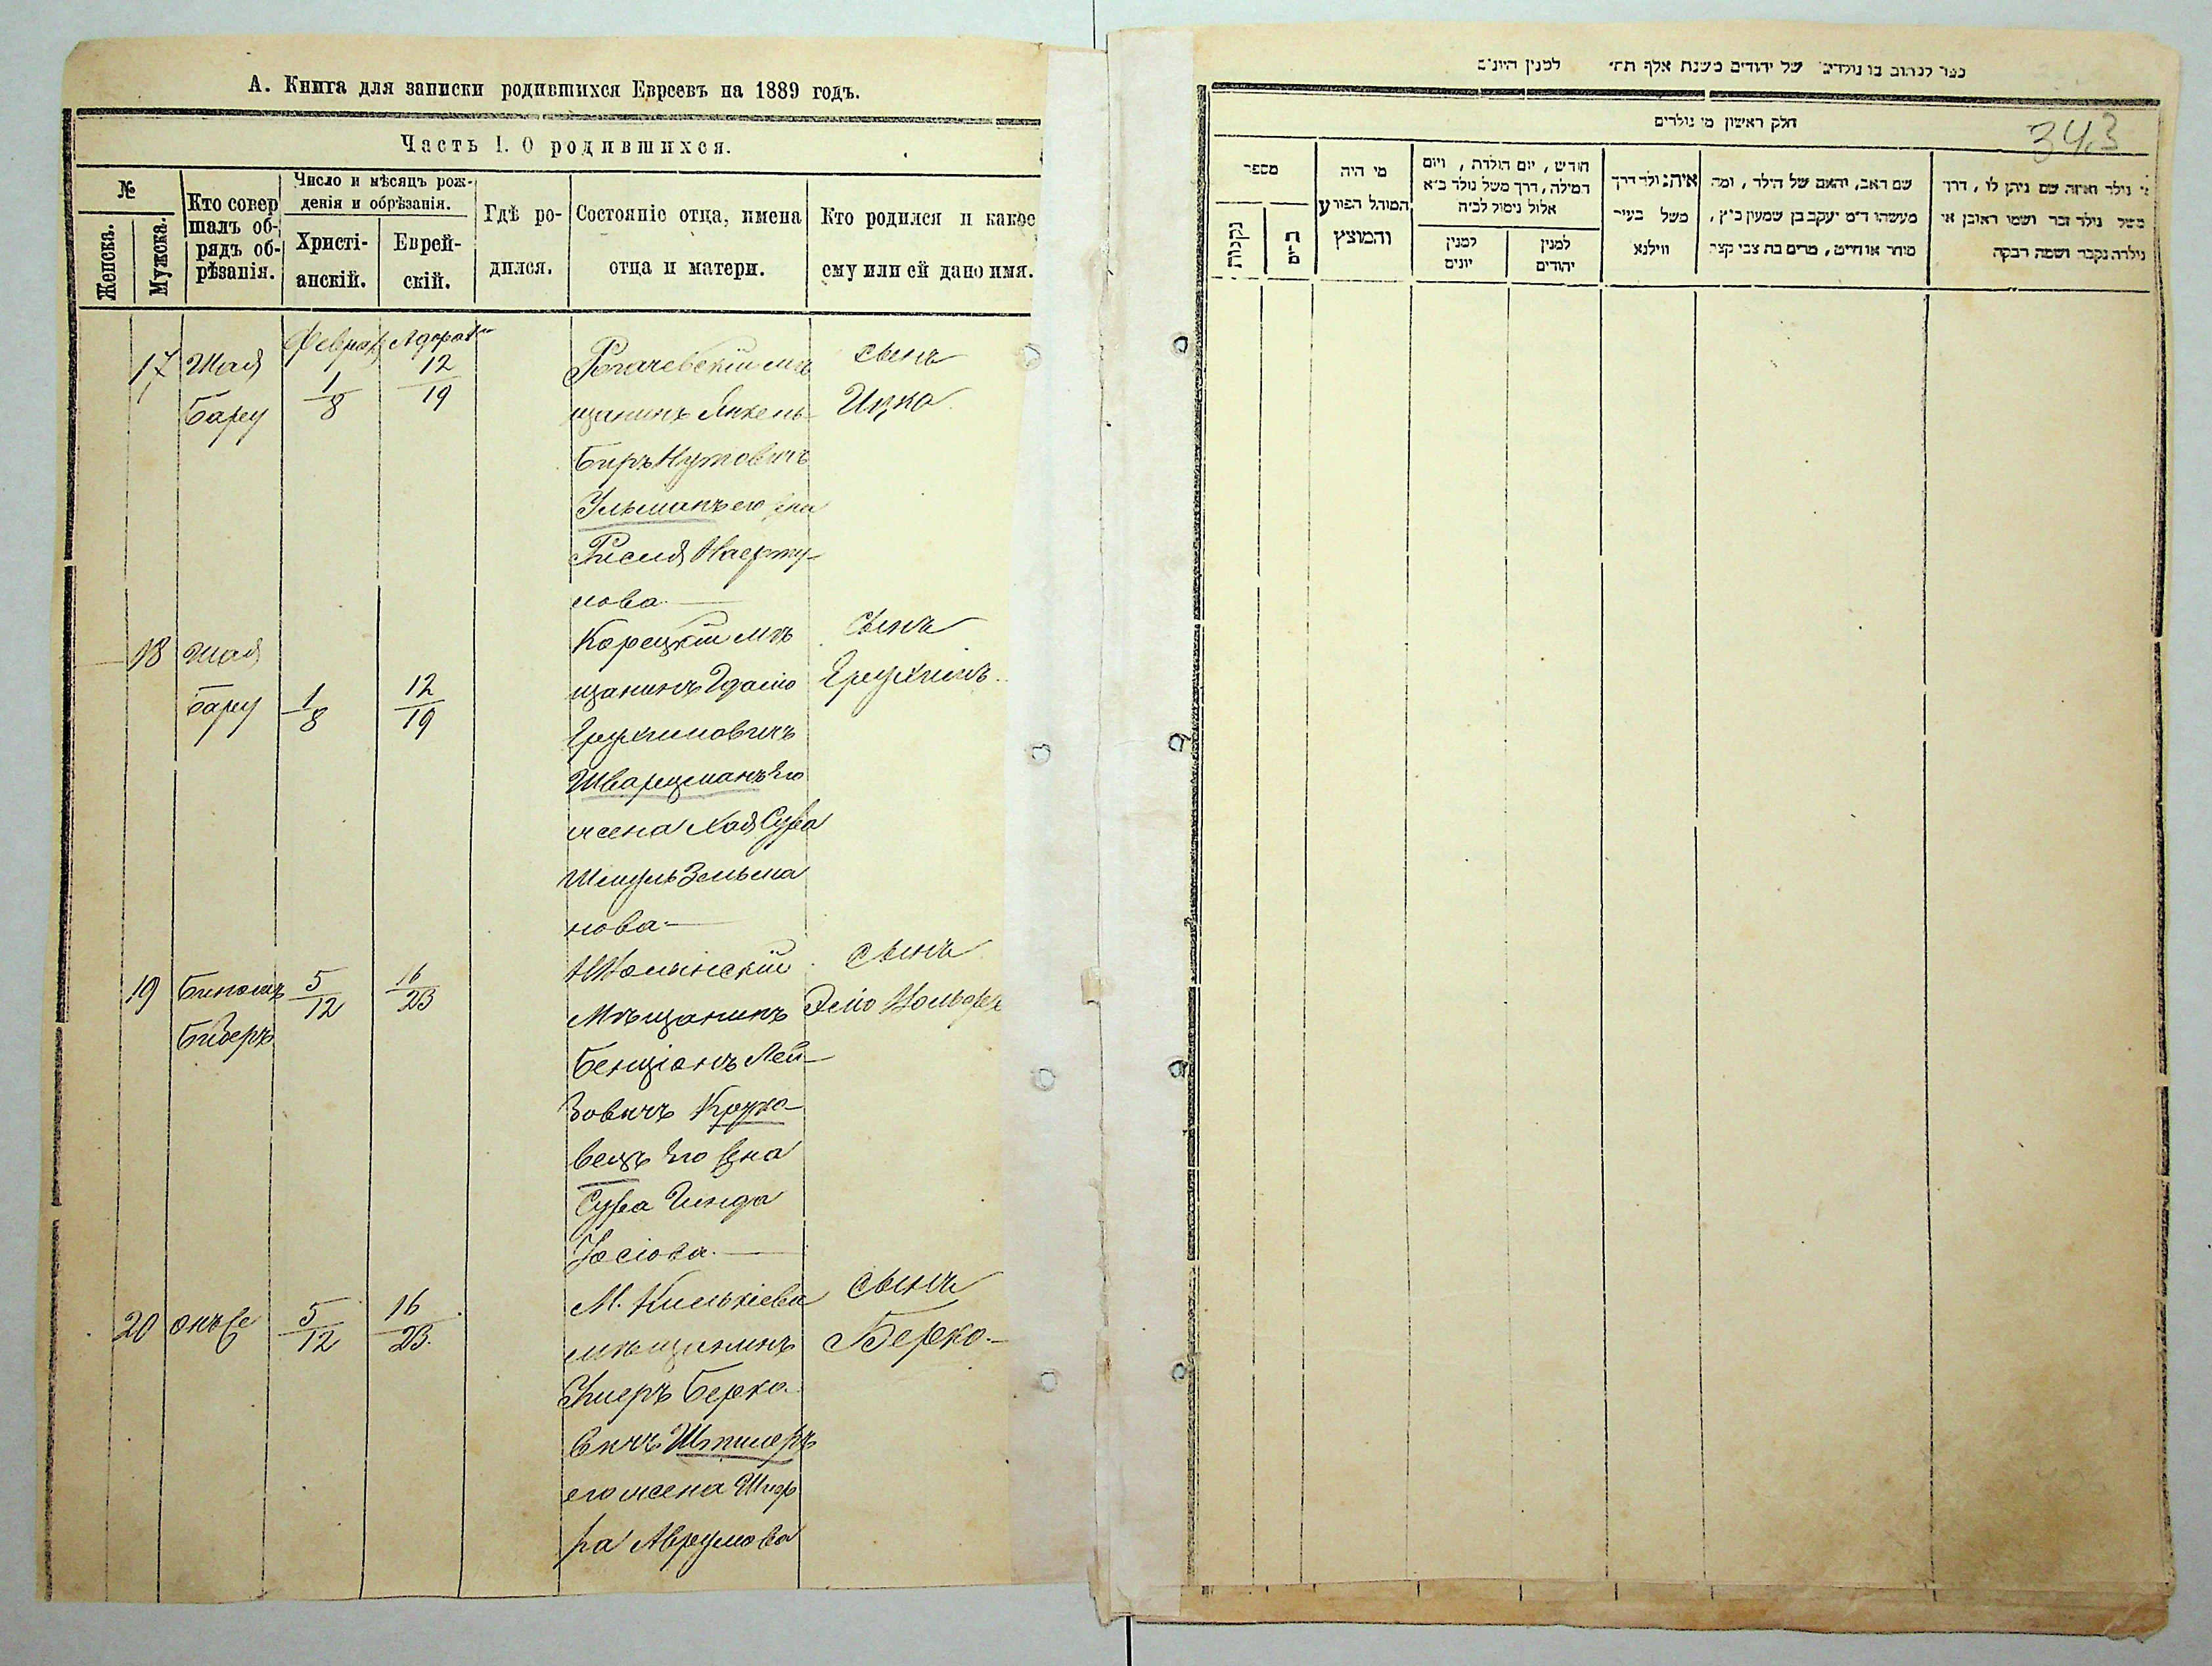 А. Книга для записки родившихся Евреевъ на 1889 годъ.
Часть I. О родившихся.
№
Женска.
Мужска.
Кто совер
шалъ об-
рядъ об-
рѣзанія.
Число и мѣсяцъ рож-
денія и обрѣзанія.
Христі-
анскій.
Еврей-
скій.
Гдѣ ро-
дился.
Состояніе отца, имена
отца и матери.
Кто родился и какое
ему или ей дано имя.
17 Шая
Барец
Феврал
1
8
Адара
12
19
Рогачевскій мѣ
щанинъ Янкель-
Беръ Нутовичъ
Ульманъ его жна
Рисля
нова
сынъ
Ицко
18 Шая
Барец
1
8
12
19
Корецкій мѣ
щанинъ Гдаліо
Ерухимовичъ
Шварцманъ Его
жена Хая Сура
Шмуль Зельма
нова
сынъ
Ерухимъ
19
Бидеръ
5
12
16
23
мѣщанинъ
Бенціонъ Лей-
зовичъ
вецъ Его жна
Сура Гинда
Іосіова
сынъ
20 онъ же
5
12
16
23.
М.
мѣщанинъ
Берко
вичъ
его жена Шиф
ра Аврумова
сынъ
Берко
343
של יהודים בשנת אלף תת׳ למנין היונים
חלק ראשון מי נולדים
מספר
נקבות
מי היה
המוהל הפורע
והמוצץ
חודש, יום הולדת, ויום
המילה, דרך משל נולד כ״א
אלול נימול לכ״ח
למנין
יונים
למנין
יהודים
איה נולד דרך
משל בעיר
ווילנא
שם האב, והאם של הילד, ומה
מעשהו ד״מ יעקב בן שמעון כ״ץ,
סוחר או חייט, מרים בת צבי קצר
מי נולד ואיזה שם ניתן לו, דרך
משל נולד זכר ושמו ראובן או
נולדה נקבה ושמה רבקה